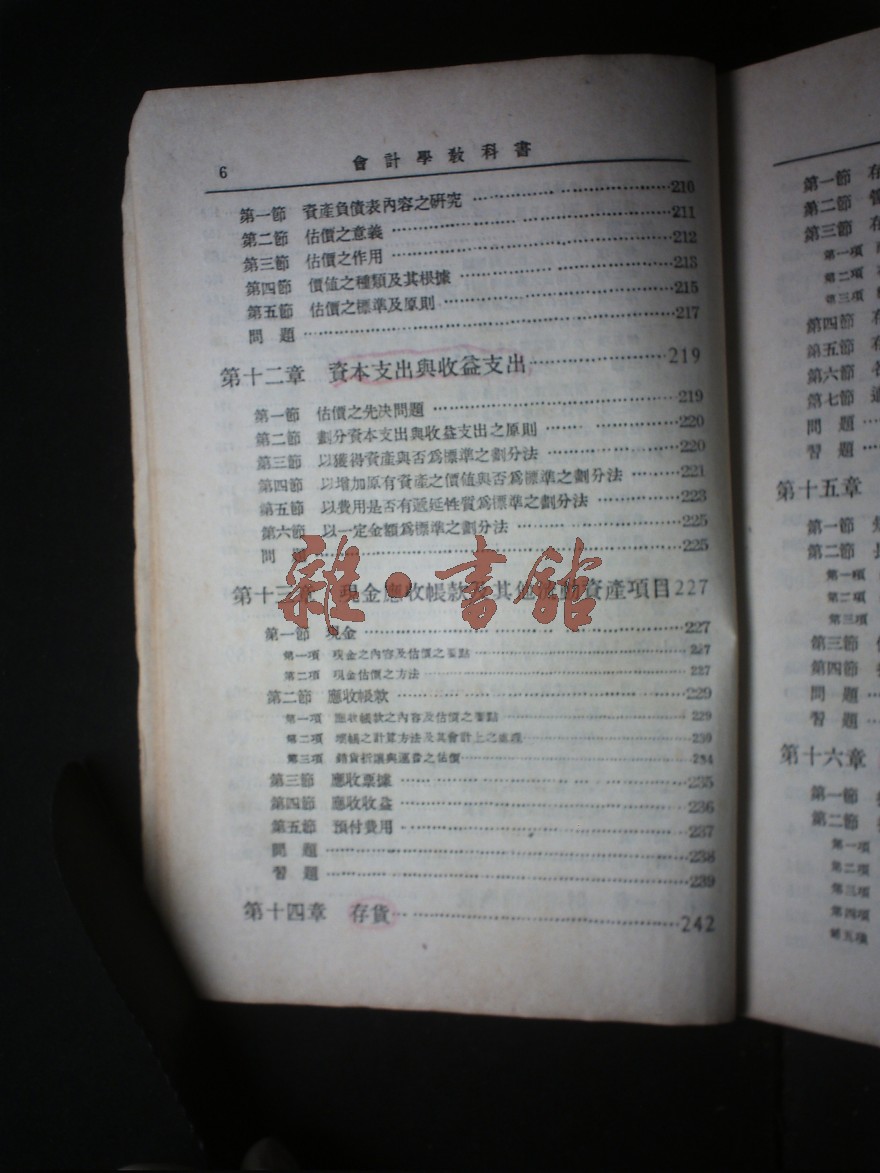 6 會計學教科書
第一節 資產負債表內容之研究 210
第二節 估價之意義 211
第三節 估價之作用 212
第四節 價值之種類及其根據 213
第五節 估價之標準及原則 215
問題 217
第十二章 資本支出與收益支出 219
第一節 估價之先决問題 219
第二節 劃分資本支出與收益支出之原則 220
第三節 以獲得資產與否爲標準之劃分法 220
第四節 以增加原有資產之價値與否爲標準之劃分法 221
第五節 以費用是否有遞延性質爲標準之劃分法 223
第六節 以一定金額爲標準之劃分法 225
問題 225
雜·書館
第十三章 現金應收帳款及其他流動資產項目 227
第一節 現金 227
第一項 現金之內容及估價之要點 227
第二項 現金估價之方法 227
第二節 應收帳款 229
第一項 應收帳款之內容及估價之要點 229
第二項 壞帳之計算方法及其會計上之處理 230
第三項 銷貨折讓與運費之估價 234
第三節 應收票據 235
第四節 應收收益 236
第五節 預付費用 237
問題 238
習題 239
第十四章 存貨 242
第一節 存
第二節
第三節 存
第一項
第二項
第三項
第四節 存
第五節 存
第六節
第七節
問題
習題
第十五章
第一節
第二節 長
第一項
第二項
第三項
第三節
第四節
問題
習題
第十六章
第一節
第二節
第一項
第二項
第三項
第四項
第五項